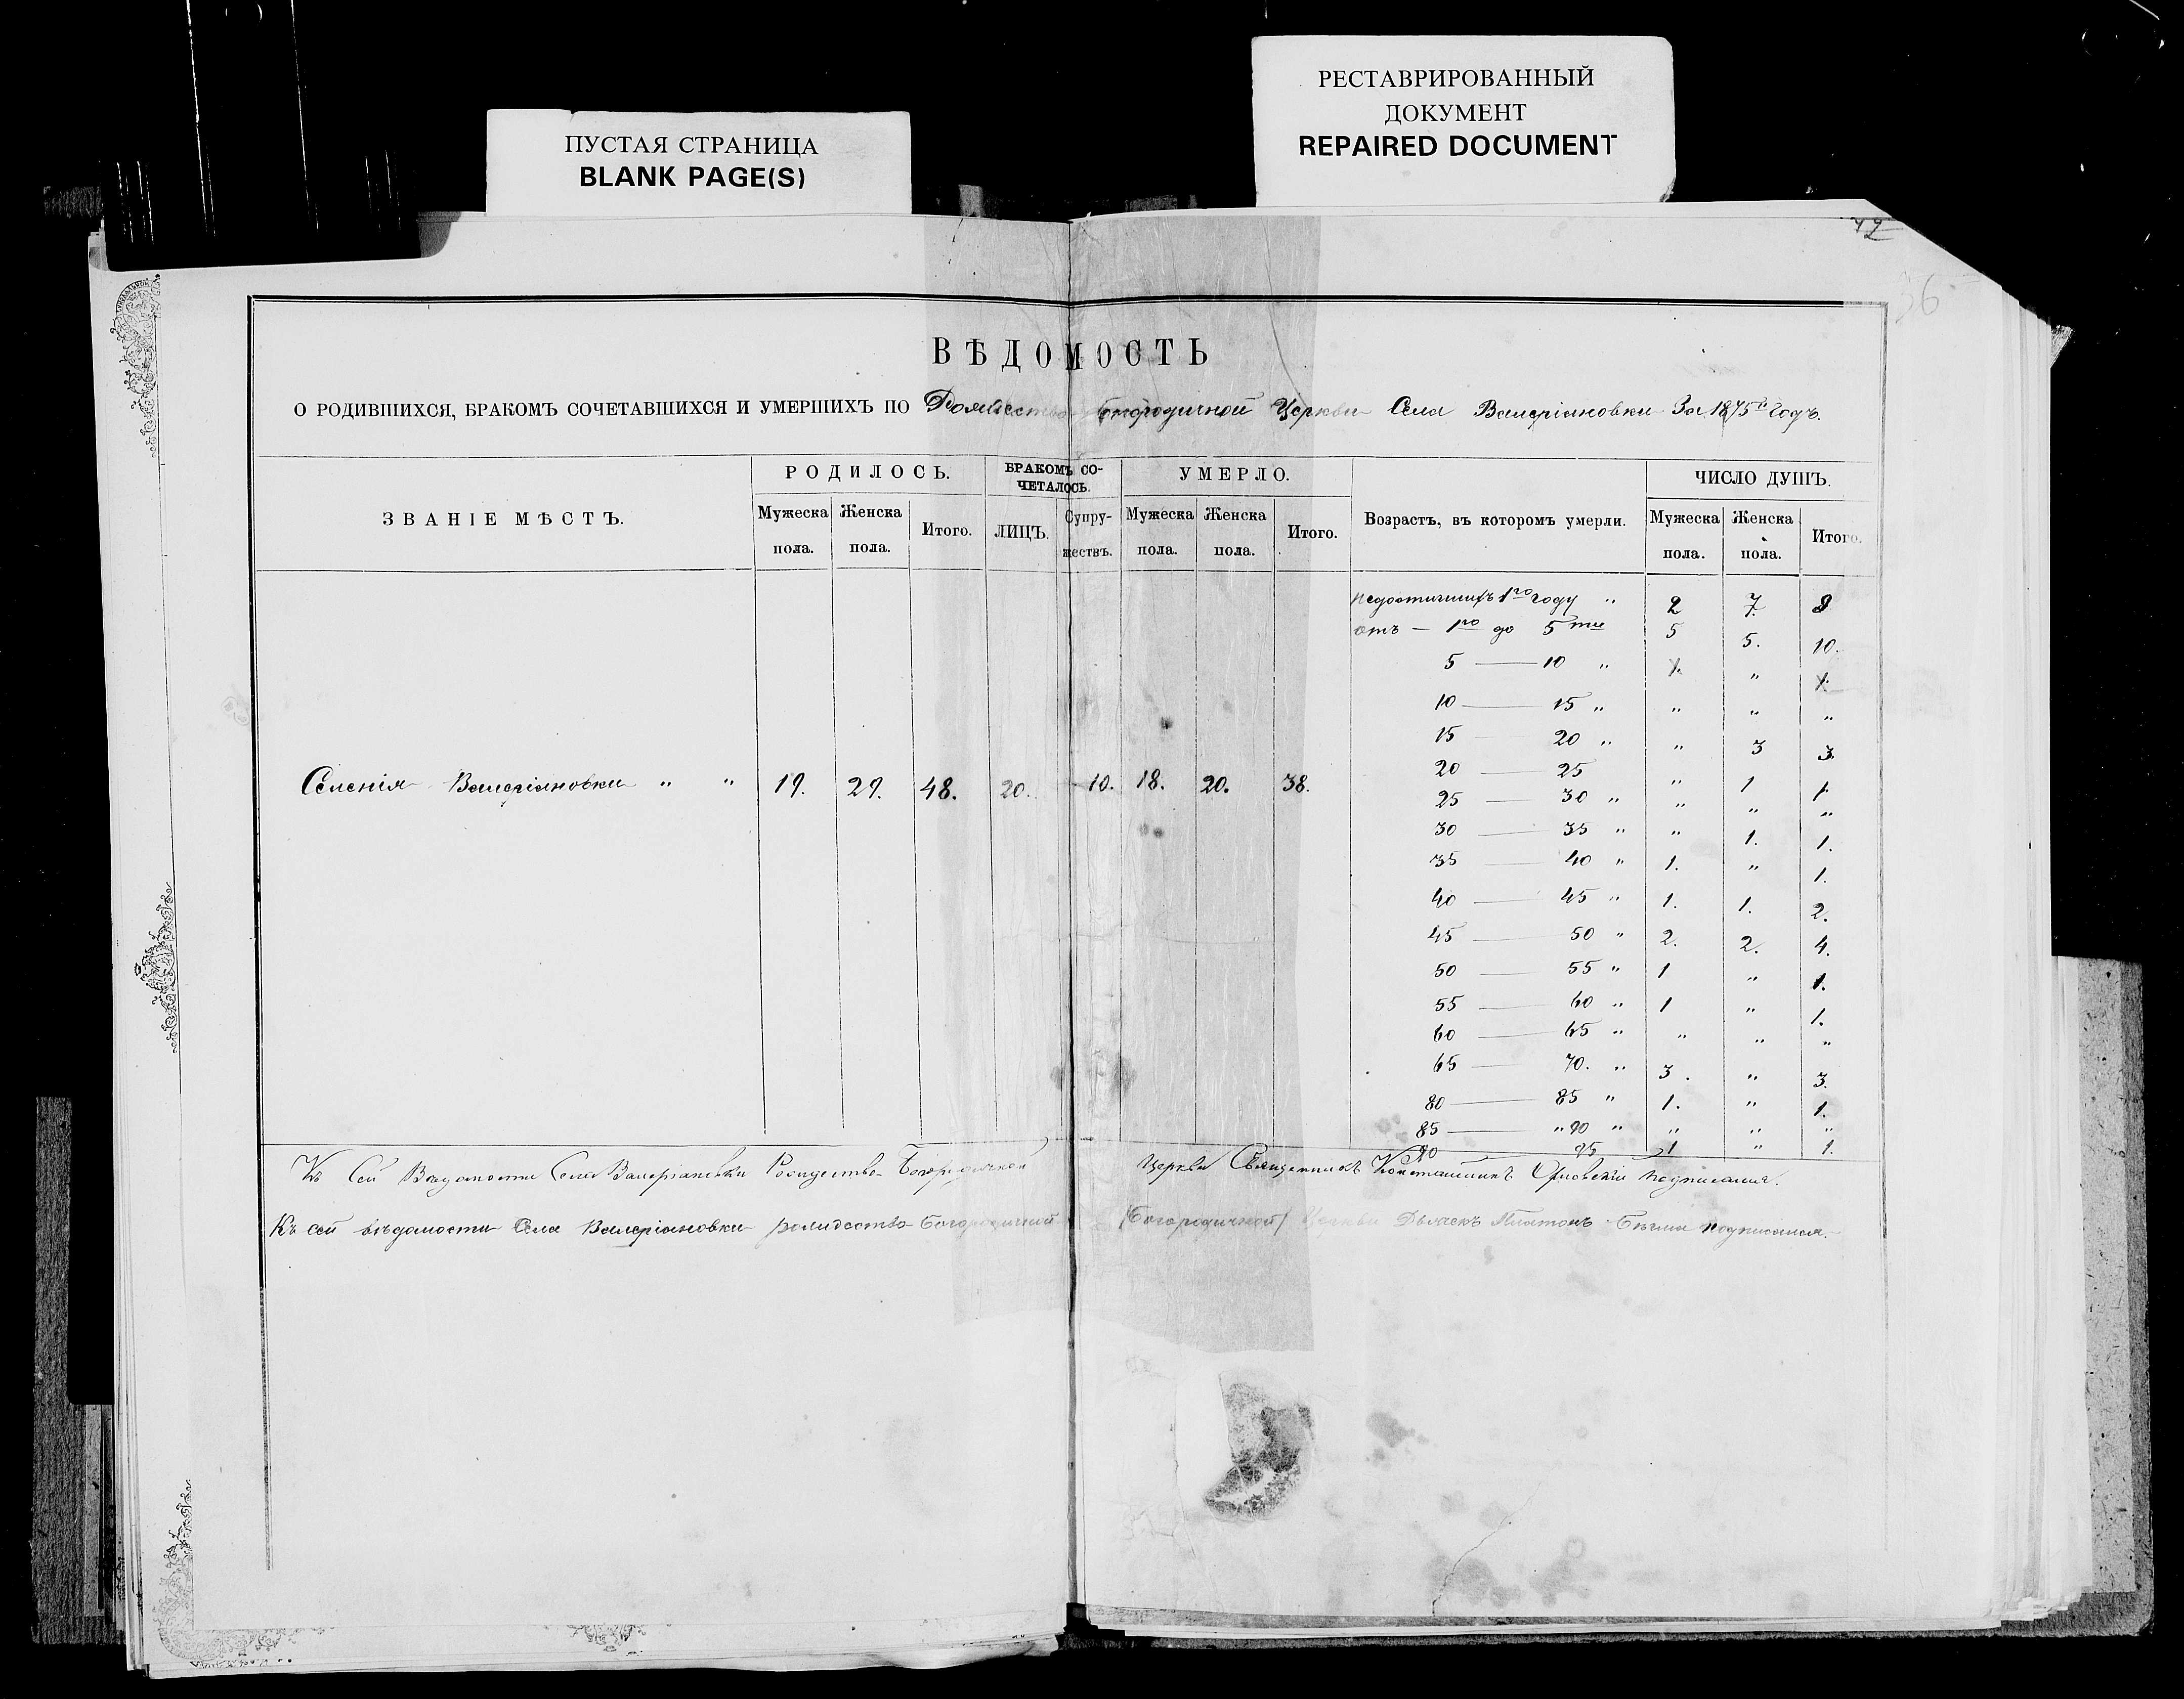 РЕСТАВРИРОВАННЫЙ
ДОКУМЕНТ
REPAIRED DOCUMENT
ПУСТАЯ СТРАНИЦА
BLANK PAGE(S)
42
36
ВѢДОМОСТЬ
О РОДИВШИХСЯ, БРАКОМЪ СОЧЕТАВШИХСЯ И УМЕРШИХЪ ПО Рождество Богородичной Церкви Села Валеріановки За 1875й годъ.
ЗВАНІЕ МѢСТЪ. РОДИЛОСЬ. БРАКОМЪ СОЧЕТАЛОСЬ. УМЕРЛО. Возрастъ, въ которомъ умерли. ЧИСЛО ДУШЪ.
Мужеска пола. Женска пола. Итого. ЛИЦЪ. Супружествъ. Мужеска пола. Женска пола. Итого. Мужеска пола. Женска пола. Итого.
недостигшихъ 1го году " 2 7. 9
отъ — 1го до 5ти 5 5. 10.
5 — 10 " 1. " 1.
10 — 15 " " " "
15 20 " " 3 3.
20 — 25 " 1 1
Селенія Валеріановки " " 19. 29. 48. 20. 10. 18. 20. 38.
25 — 30 " " " "
30 — 35 " " 1. 1.
35 — 40 " 1. " 1.
40 — 45 " 1. 1. 2.
45 — 50 " 2. 2. 4.
50 — 55 " 1 " 1.
55 — 60 " 1 " 1.
60 — 65 " " " "
65 — 70. " 3. " 3.
80 — 85 " 1. " 1.
85 — "90 " " " "
90 95 1 " 1.
Къ Сей Ведомости Села Валеріановки Рождество-Богородичной Церкви Священникъ Константинъ Орловскій подписался.
Къ сей вѣдомости Села Валеріановки рождество Богородичной /Богородичной/ Церкви Дьячекъ Платонъ подписался.